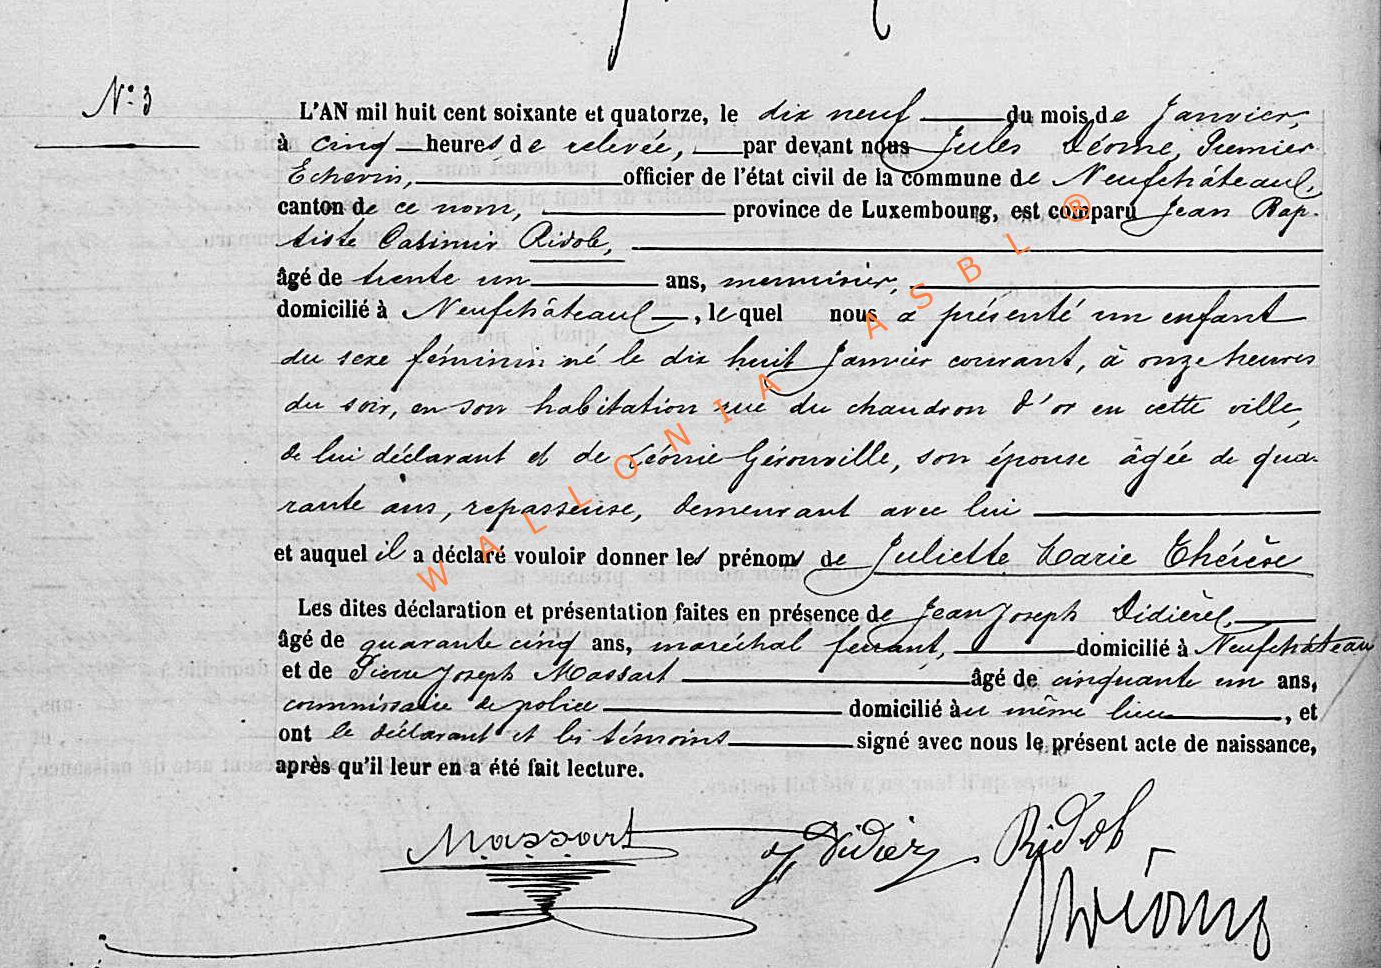 N° 3
L'AN mil huit cent soixante et quatorze, le dix neuf du mois de Janvier,
à cinq heures de relevée, par devant nous Jules Déome, Premier
Echevin, officier de l'état civil de la commune de Neufchâteau,
canton de ce nom, province de Luxembourg, est comparu Jean Bap-
tiste Casimir Ridole,
âgé de trente un ans, menuisier,
domicilié à Neufchâteau, lequel nous a présenté un enfant
du sexe féminin né le dix huit Janvier courant, à onze heures
du soir, en son habitation rue du chaudron d'or en cette ville,
de lui déclarant et de Léonie Géronville, son épouse âgée de qua-
rante ans, repasseuse, demeurant avec lui
et auquel il a déclaré vouloir donner les prénoms de Juliette Marie Thérèse
Les dites déclaration et présentation faites en présence de Jean Joseph
âgé de quarante cinq ans, maréchal ferrant, domicilié à Neufchâteau
et de Pierre Joseph Massart âgé de cinquante un ans,
commissaire de police domicilié au même lieu, et
ont le déclarant et les témoins signé avec nous le présent acte de naissance,
après qu'il leur en a été fait lecture.
WALLONIA ASBL ®
Massart Didier Ridole
Déome